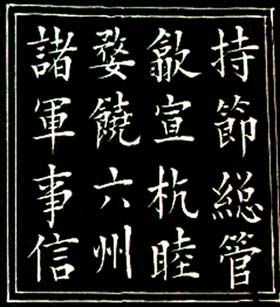 持節緫管
歙宣杭睦
婺饒六州
諸軍事信